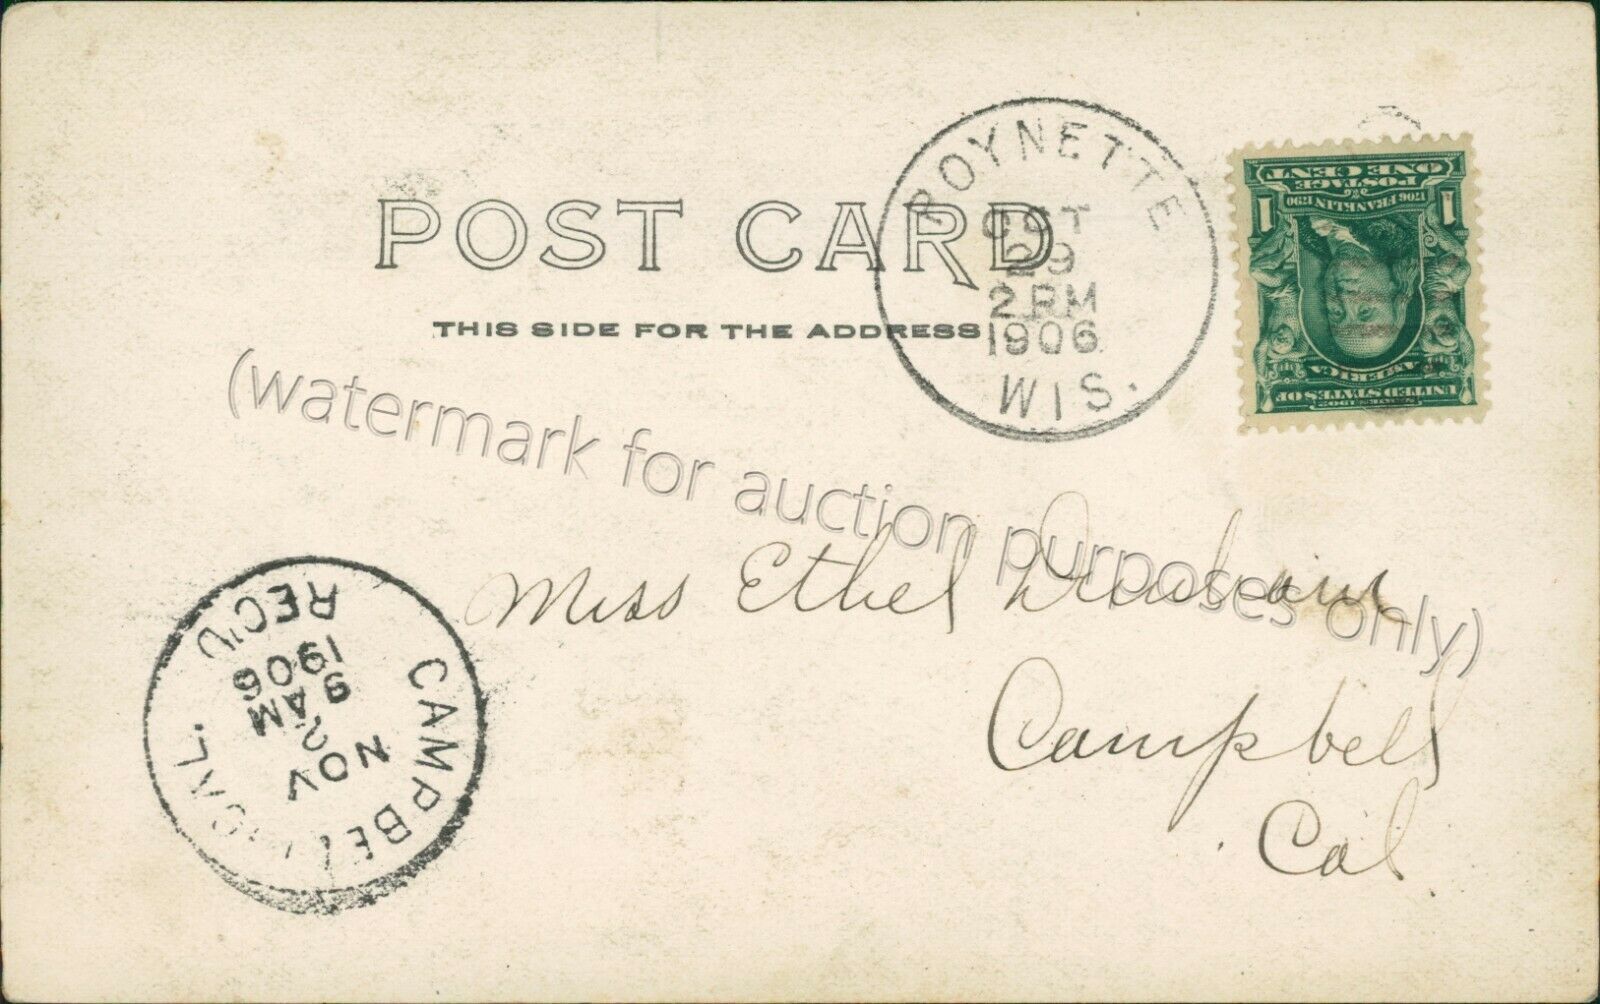 POST CARD
THIS SIDE FOR THE ADDRESS
POYNETTE
OCT
29
2 PM
1906
WIS.
1 1
ONE CENT
POSTAGE
1706 FRANKLIN 1790
SERIES 1902
UNITED STATES OF
AMERICA
(watermark for auction purposes only)
Miss Ethel
Campbell
Cal.
CAMPBELL, CAL.
NOV
2
9 AM
1906
REC'D